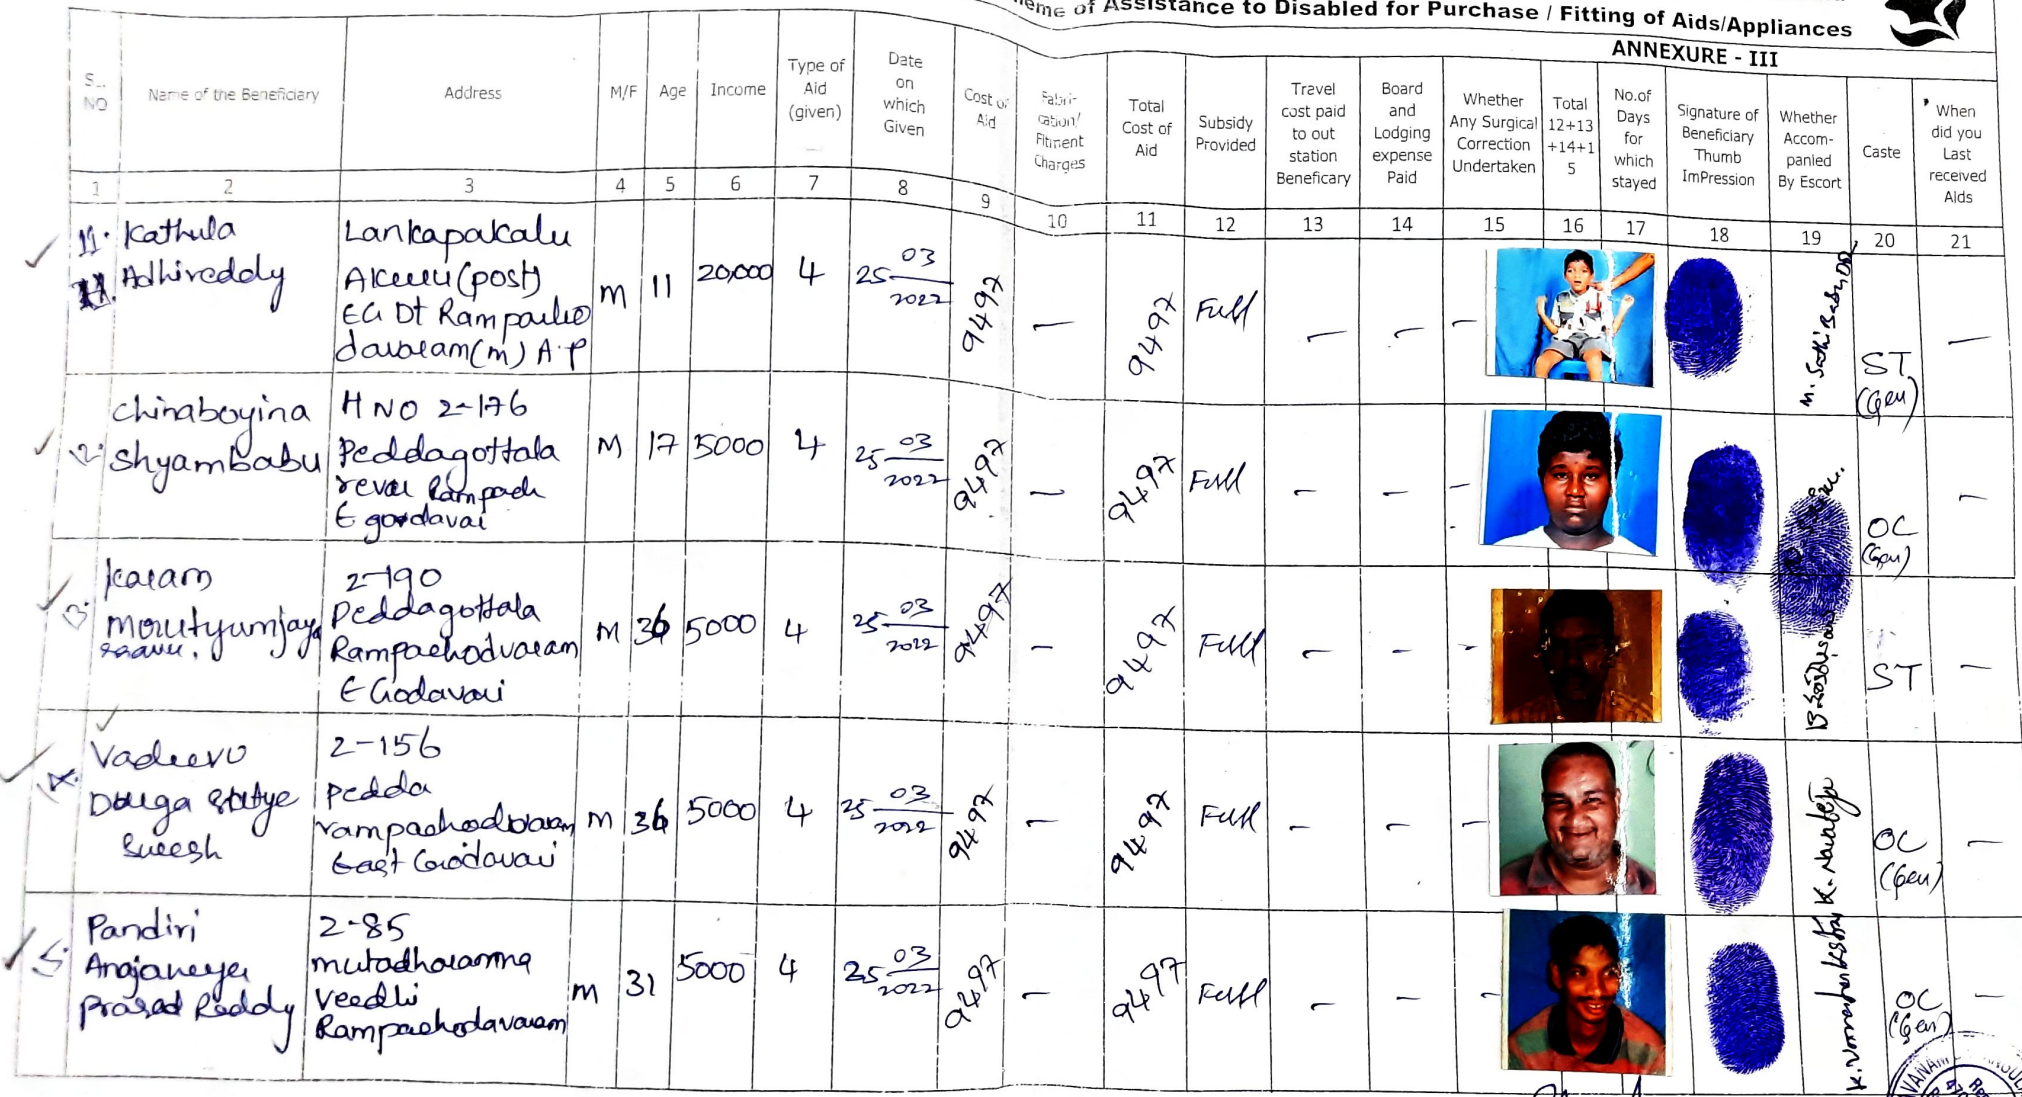 eme of Assistance to Disabled for Purchase / Fitting of Aids/Appliances
ANNEXURE - III
S.. NO
Name of the Beneficiary
Address
M/F
Age
Income
Type of Aid (given)
Date on which Given
Cost of Aid
Fabri-cation/ Fitment Charges
Total Cost of Aid
Subsidy Provided
Travel cost paid to out station Beneficary
Board and Lodging expense Paid
Whether Any Surgical Correction Undertaken
Total 12+13 +14+1 5
No.of Days for which stayed
Signature of Beneficiary Thumb ImPression
Whether Accom-panied By Escort
Caste
When did you Last received Aids
1 2 3 4 5 6 7 8 9 10 11 12 13 14 15 16 17 18 19 20 21
11. Kathula
Adhireddy
Lankapakalu
(post)
EG Dt
(m) A.P
m 11 20,000 4 25 03 2022 9497 — 9497 Full — — —
ST (Gen) —
12. Chinaboyina
Shyambabu
H NO 2-176
Peddagottala
M 17 5000 4 25 03 2022 9497 — 9497 Full — — —
OC (Gen) —
13. Karam
2-190
Peddagottala
Rampachodvaram
E Godavari
m 36 5000 4 25 03 2022 9497 — 9497 Full — — -
ST —
14. Vadrevu
Durga
Suresh
2-156
Pedda
rampachodvaram
East Godavari
m 36 5000 4 25 03 2022 9497 — 9497 Full — — —
K. Navateja
OC (Gen) —
15. Pandiri
Anajaneya
Prasad Reddy
2-85
Veedhi
Rampachodavaram
m 31 5000 4 25 03 2022 9497 — 9497 Full — — -
OC (Gen) —